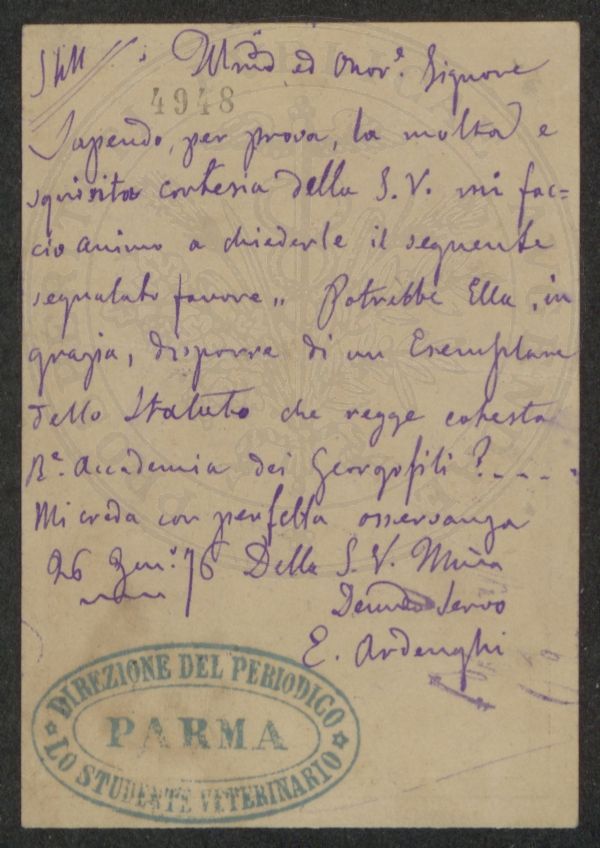 Illmo ed Onor.e Signore
4948
Sapendo, per prova, la molta e
squisita cortesia della S. V. mi fac=
cio animo a chiederle il seguente
segnalato favore „ Potrebbe Ella, in
grazia, disporre di un Esemplare
dello Statuto che regge cotesta
R.e Accademia dei Georgofili ?
Mi creda con perfetta osservanza
26 Gen.o 76 Della S. V.
Servo
E. Ardenghi
DIREZIONE DEL PERIODICO
PARMA
LO STUDENTE VETERINARIO